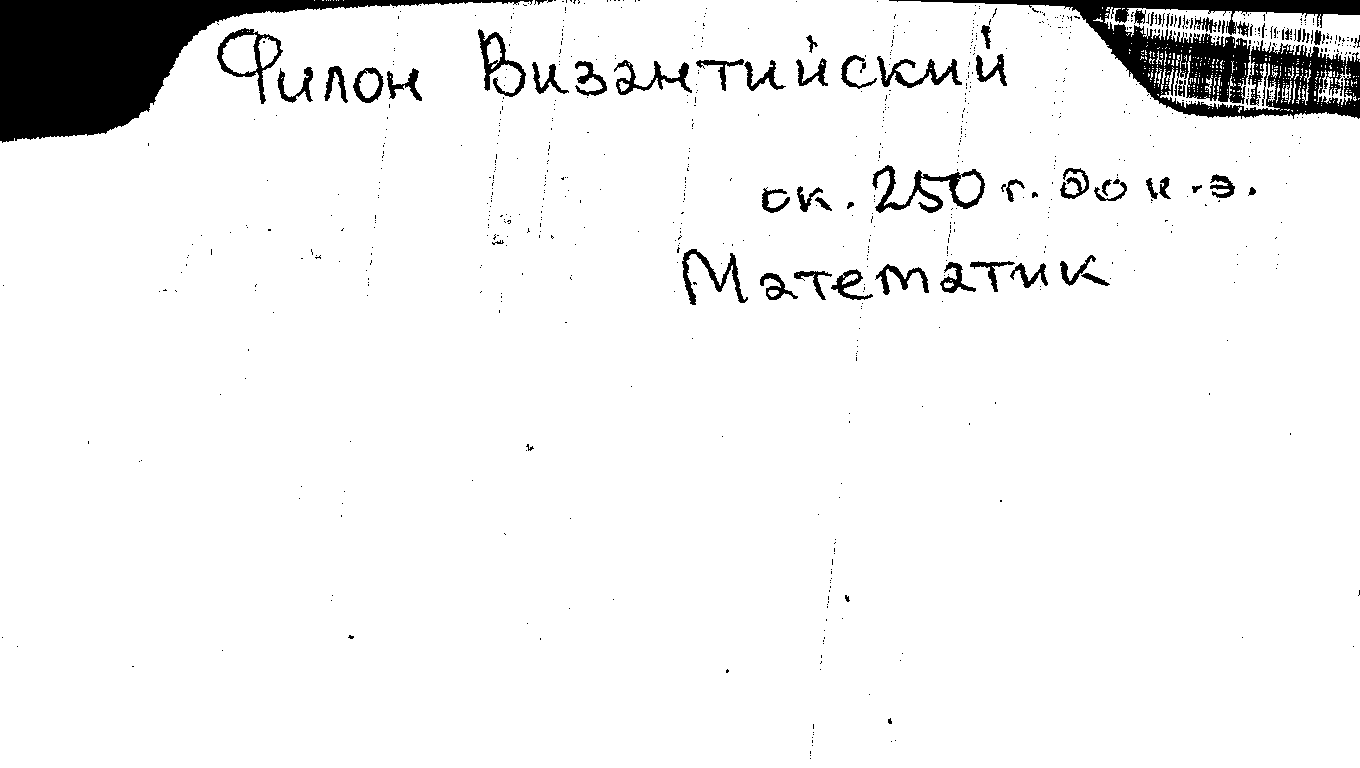 Филон Византийский
ок. 250 г. до н.э.
Математик